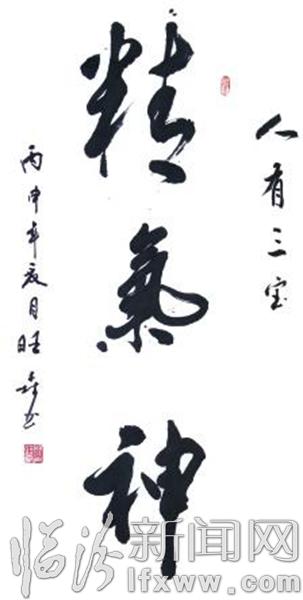 人有三宝
精氣神
丙申年夏月旺书
临汾新闻网
lfxww.com